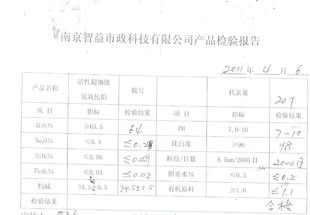 南京智益市政科技有限公司产品检验报告
2011 年 4 月 6
产品名称 活性超细级氢氧化铝 批号 代表量 20T
项目 指标 检验结果 项目 指标 检验结果
Al₂O₃% ≥63.5 64 PH 7.0-10 7-10
≤0.4 比白度 ≥96 98
SiO₂% ≤0.06 粒径/目数 6.5um/2000目 2000目
≤0.03 ≤0.02 附着水% ≤0.5 ≤0.2
灼减 34.5±0.5 34.5±0.5 有机原料 ≥1.0 ≤1.1
合格